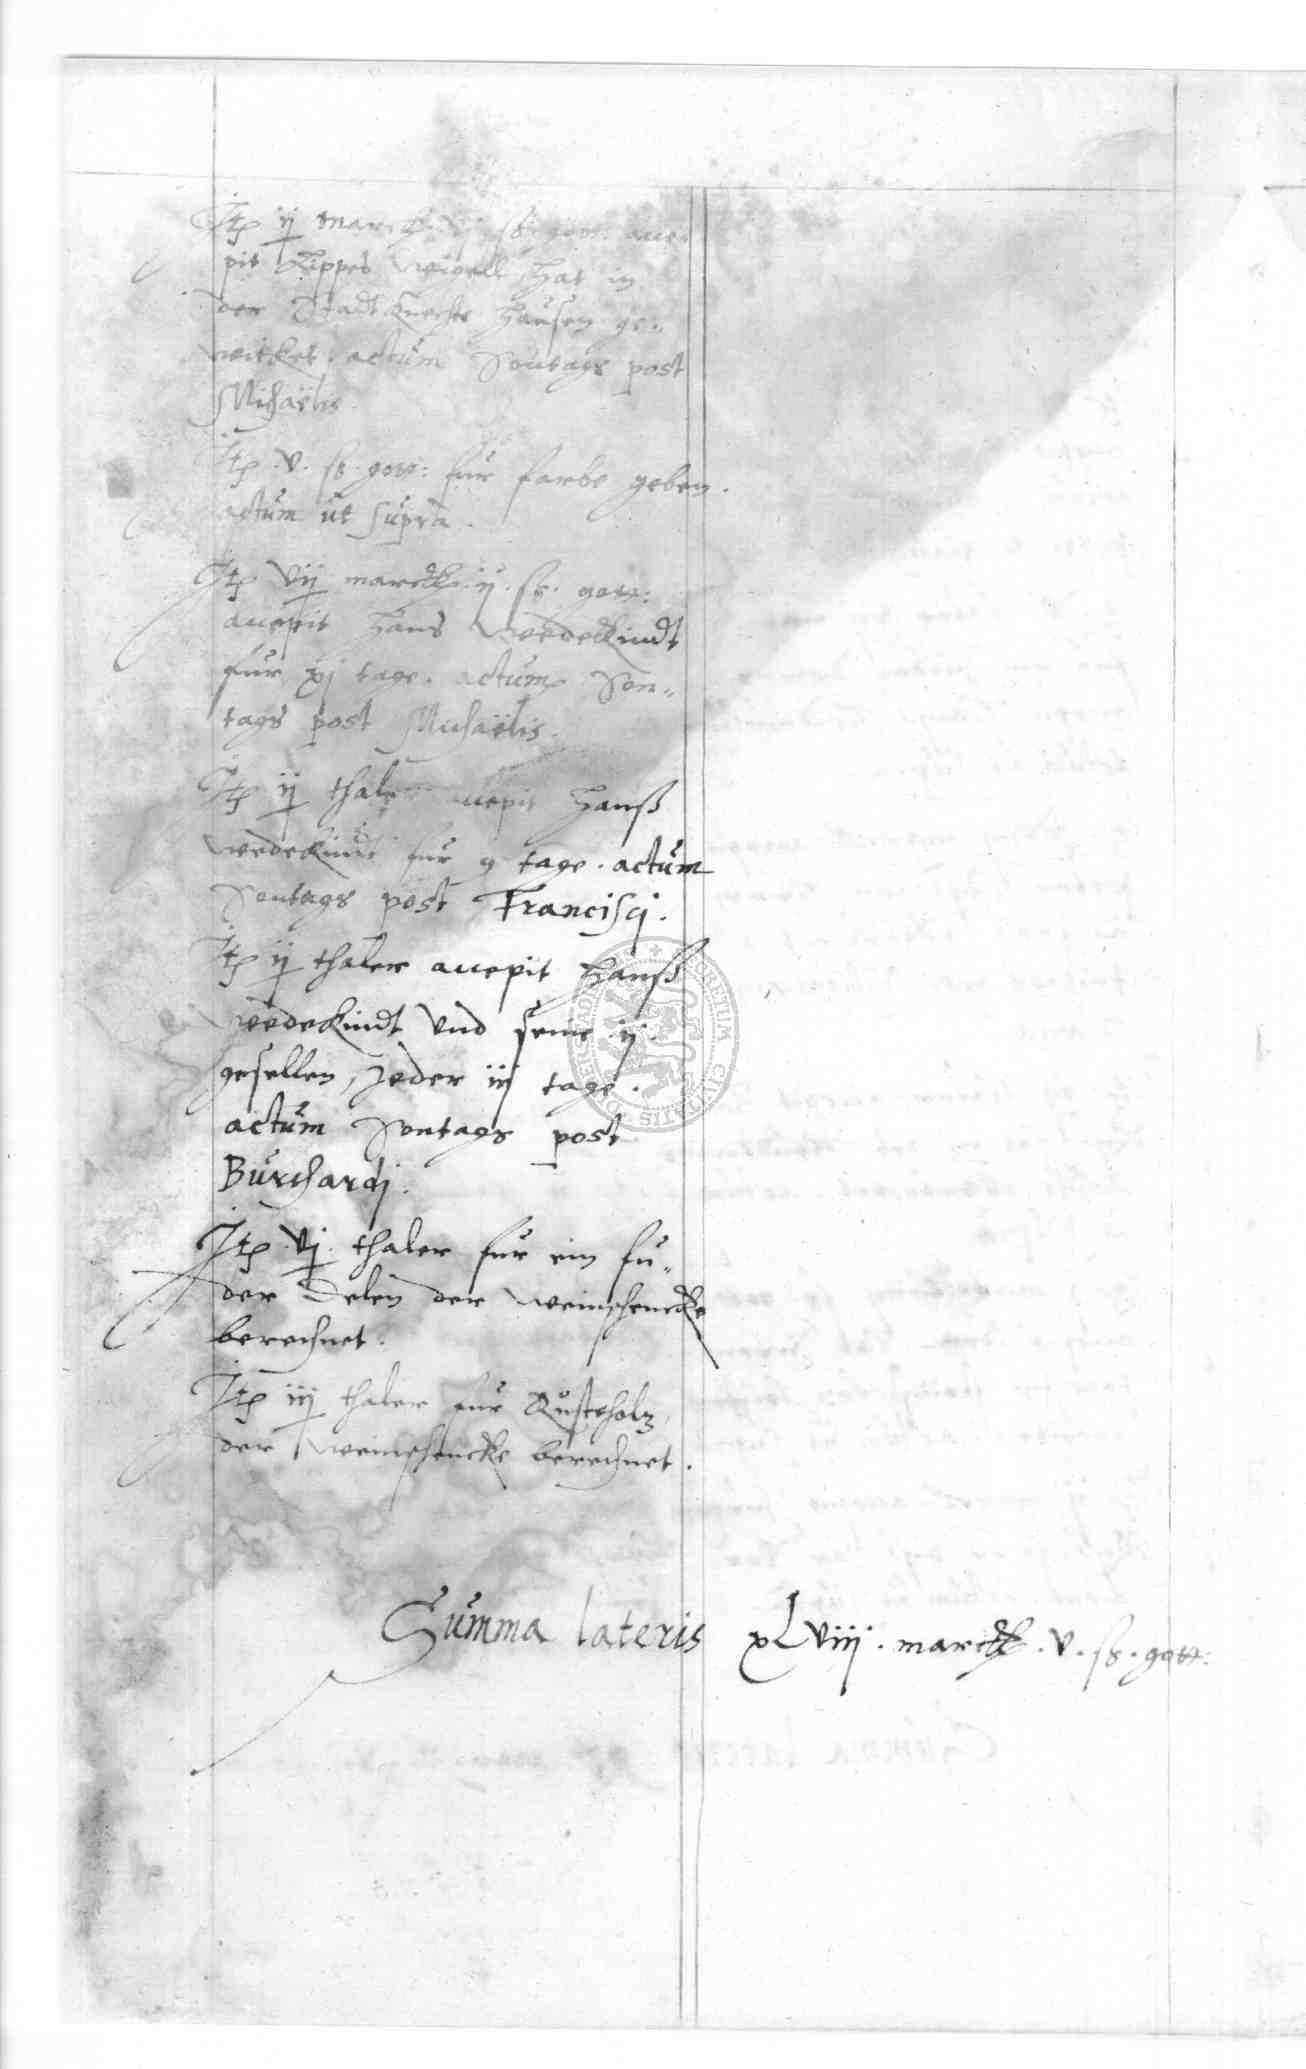 Itp ij marck vj ß gott: acce-
pit Lippes Weigell hat in
der Stadtknechte Hausen ge-
wircket. actum Sontags post
Michaëlis.
Itp .v. ß. gott: fur farbe geben.
actum ut supra.
Itp vij marck .ij. ß. gott:
accepit Hans Wedekindt
fur xj tage. actum Son-
tags post Michaëlis.
Itp ij thaler accepit Hanß
Wedekindt fur 9 tage. actum
Sontags post Francisci.
Itp ij thaler accepit Hanß
Wedekindt vnd seine ij.
gesellen, Jeder iij tage.
actum Sontags post
Burchardj.
Itp .vj. thaler fur ein fu-
der Delen der Weinschencke
berechnet.
Itp iij thaler fur Rustholtz,
der Weinschencke berechnet.
Summa lateris xLviij. marck .v. ß. gott: